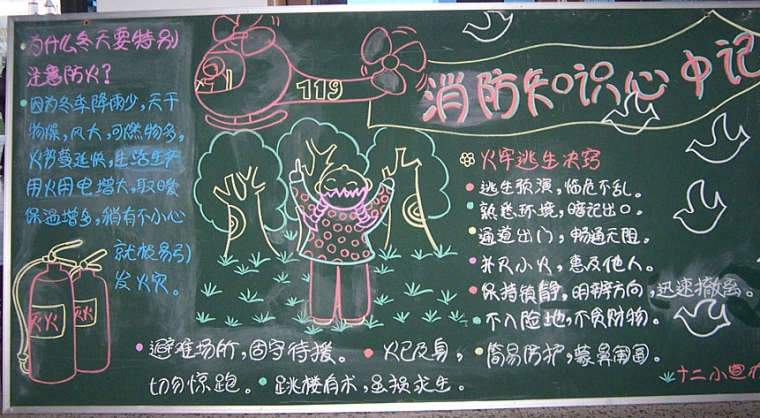 消防知识心中记
119
为什么冬天要特别
注意防火?
因为冬季降雨少,天干
物燥,风大,可燃物多,
火势蔓延快,生活生产
用火用电增大,取暖
保温增多,稍有不小心
就极易引
发火灾。
灭火
灭火
火灾逃生决窍
逃生预演,临危不乱。
熟悉环境,暗记出口。
通道出门,畅通无阻。
扑灭小火,惠及他人。
保持镇静,明辨方向,迅速撤离。
不入险地,不贪财物。
简易防护,蒙鼻匍匐。
避难场所,固守待援。
火已及身,
切勿惊跑。
跳楼有术,虽损求生。
十二小宣